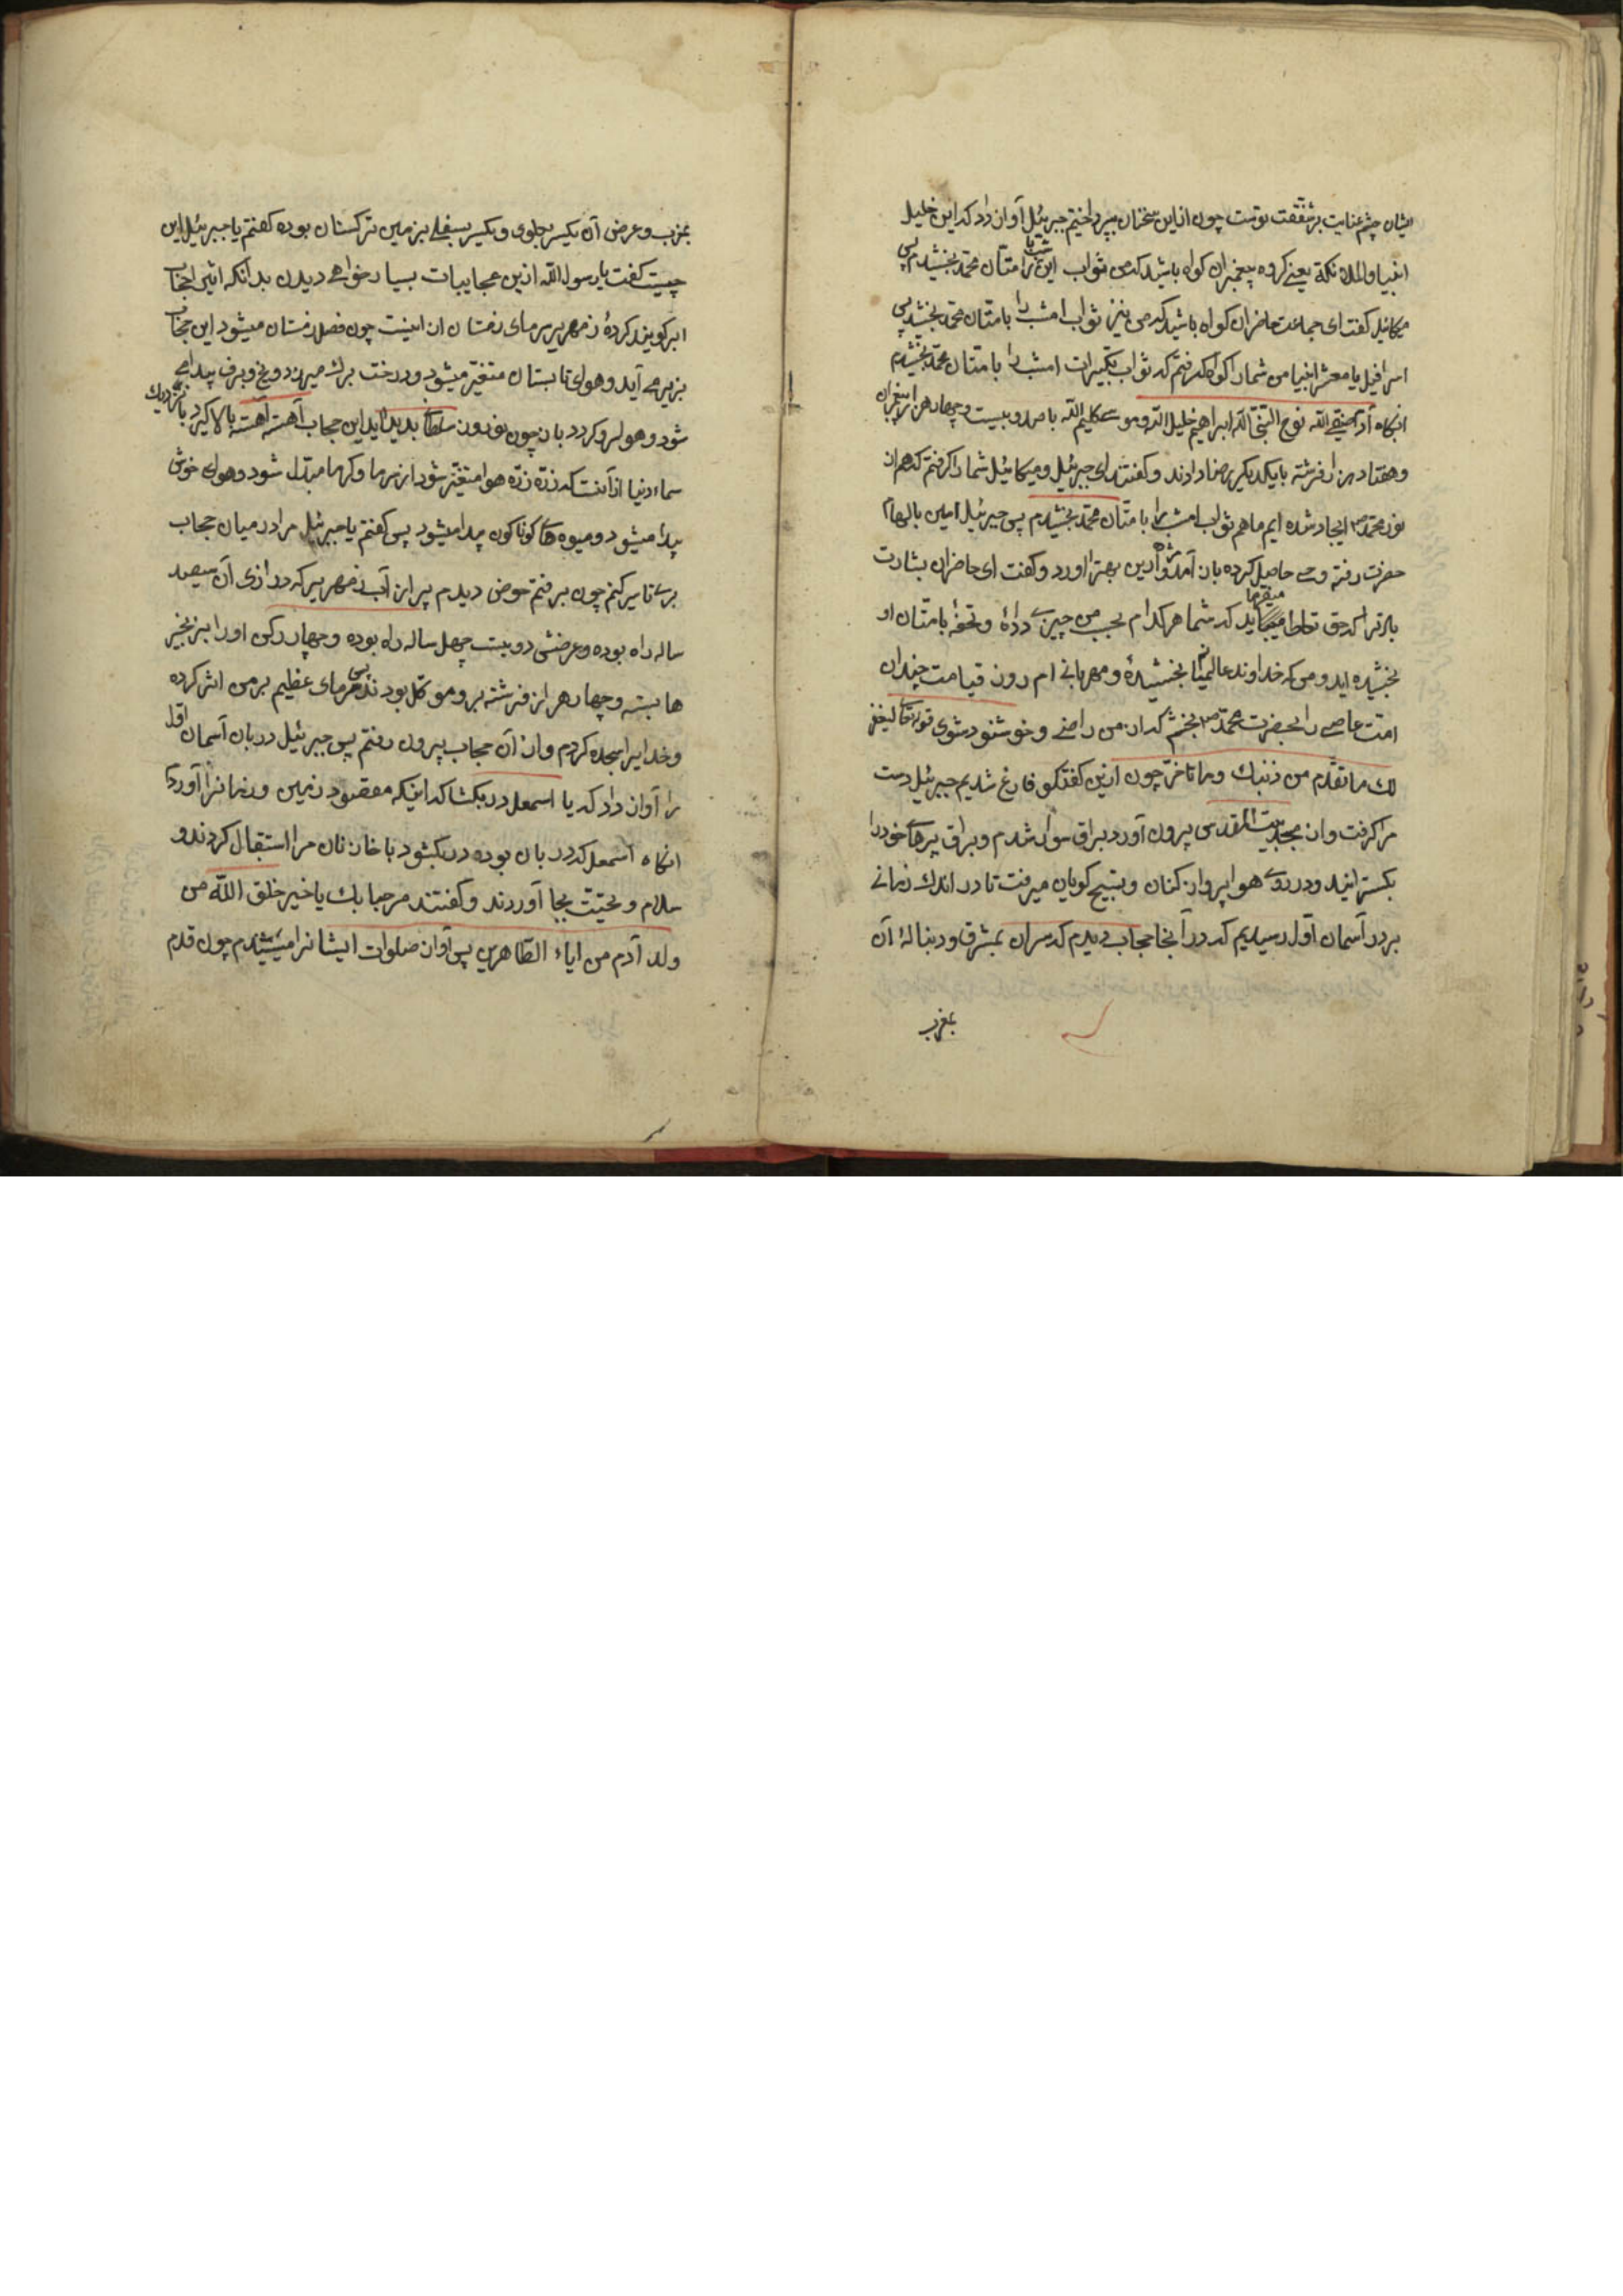 ایشان چشم عنایت بر شفقت توست چون از این سخنان بپرداختیم جبرئیل آواز داد که این خلیل
انبیا والملائکة یعنے کروه پیغمبران کواه باشید که من ثواب این را بامتان محمد بخشیدم پس
میکائیل کفت ای جماعت حاضران کواه باشید که من نیز ثواب امشب را بامتان محمد بخشیدم پس
اسرافیل یا معشر انبیا من شما را کواه کرفتم که ثواب تکبیرات امشب را بامتان محمد بخشیدم
انکاه آدم صفے الله نوح النجی الله ابراهیم خلیل الله وموسے کلیم الله با صد وبیست وچهار هزار پیغمبران
وهفتاد هزار فرشته بایکدیکر رضا دادند وکفتند ای جبرئیل ومیکائیل شما را کرفتم که هم از
نور محمد ایجاد شده ایم ما هم ثواب امشب را بامتان محمد بخشیدم پس جبرئیل امین بالهام
حضرت رفته وحے حاصل کرده باز آمد ازین بهتر اورد وکفت ای حاضران بشارت
باد مر ترا که حق تعالی میفرماید که شما هر کدام بحبیب من چیزے داده وتحفهٔ بامتان او
بخشیده اید ومن که خداوند عالمیانم بخشیدهٔ ومهربانے ام روز قیامت چندان
امت عاصے را بحضرت محمد بخشم که از من راضے وخوشنود شوی قوله تعالی لیغفر
لك ما تقدم من ذنبك وما تاخر چون ازین کفتکو فارغ شدیم جبرئیل دست
مرا کرفت واز مسجد بیت المقدس بیرون آورد براق سوار شدم وبراق پرهاے خود را
بکسترانید ودر روے هوا پرواز کنان وتسبیح کویان میرفت تا در اندك زمانے
بر در آسمان اول رسیدیم که در آنجا حجابے دیدم که سر ان بمشرق ودنبالهٔ آن
بمغرب
بمغرب وعرض آن یکسر بعلوی ویکسر بسفلے بزمین ترکستان بوده کفتم یا جبرئیل این
چیست کفت یا رسول الله ازین عجایبات بسیار خواهے دیدن بدانکه این حجاب
ابر کویند کردهٔ زمهریر سرمای زمستان از اینست چون فصل زمستان میشود این حجاب
بزیر مے آید وهوای تابستان متغیر میشود ودرخت برك میریزد ویخ وبرف پیدا مے
شود وهوا سرد کردد باز چون نوروز سلطانے بدید آید این حجاب آهسته آهسته بالا کیرد
سماء دنیا از آنست که ذره ذره هوا متغیر شود از سرما وکرما مبدل شود وهوای خوش
پیدا میشود ومیوه هاے کوناکون پیدا میشود پس کفتم یا جبرئیل مرا در میان حجاب
برے تا سیر کنم چون برفتم حوض دیدم پر از آب زمهریر که درازی آن سیصد
ساله راه بوده وعرضش دویست چهل ساله راه بوده وچهار رکن او را بزنجیر
ها بسته وچهار هزار فرشته بر و موکل بودند پس سرمای عظیم بر من اثر کرده
وخدایرا سجده کردم واز آن حجاب بیرون رفتم پس جبرئیل دربان آسمان اول
را آواز داد که یا اسمعیل در بکشا که اینکه مقصود زمین وزمانرا آوردم
انکاه اسمعیل که دربان بوده در بکشود با خازنان مرا استقبال کردند و
سلام وتحیت بجا آوردند وکفتند مرحبا بك یا خیر خلق الله من
ولد آدم من اباء الطاهرین پس آواز صلوات ایشانرا میشنیدم چون قدم